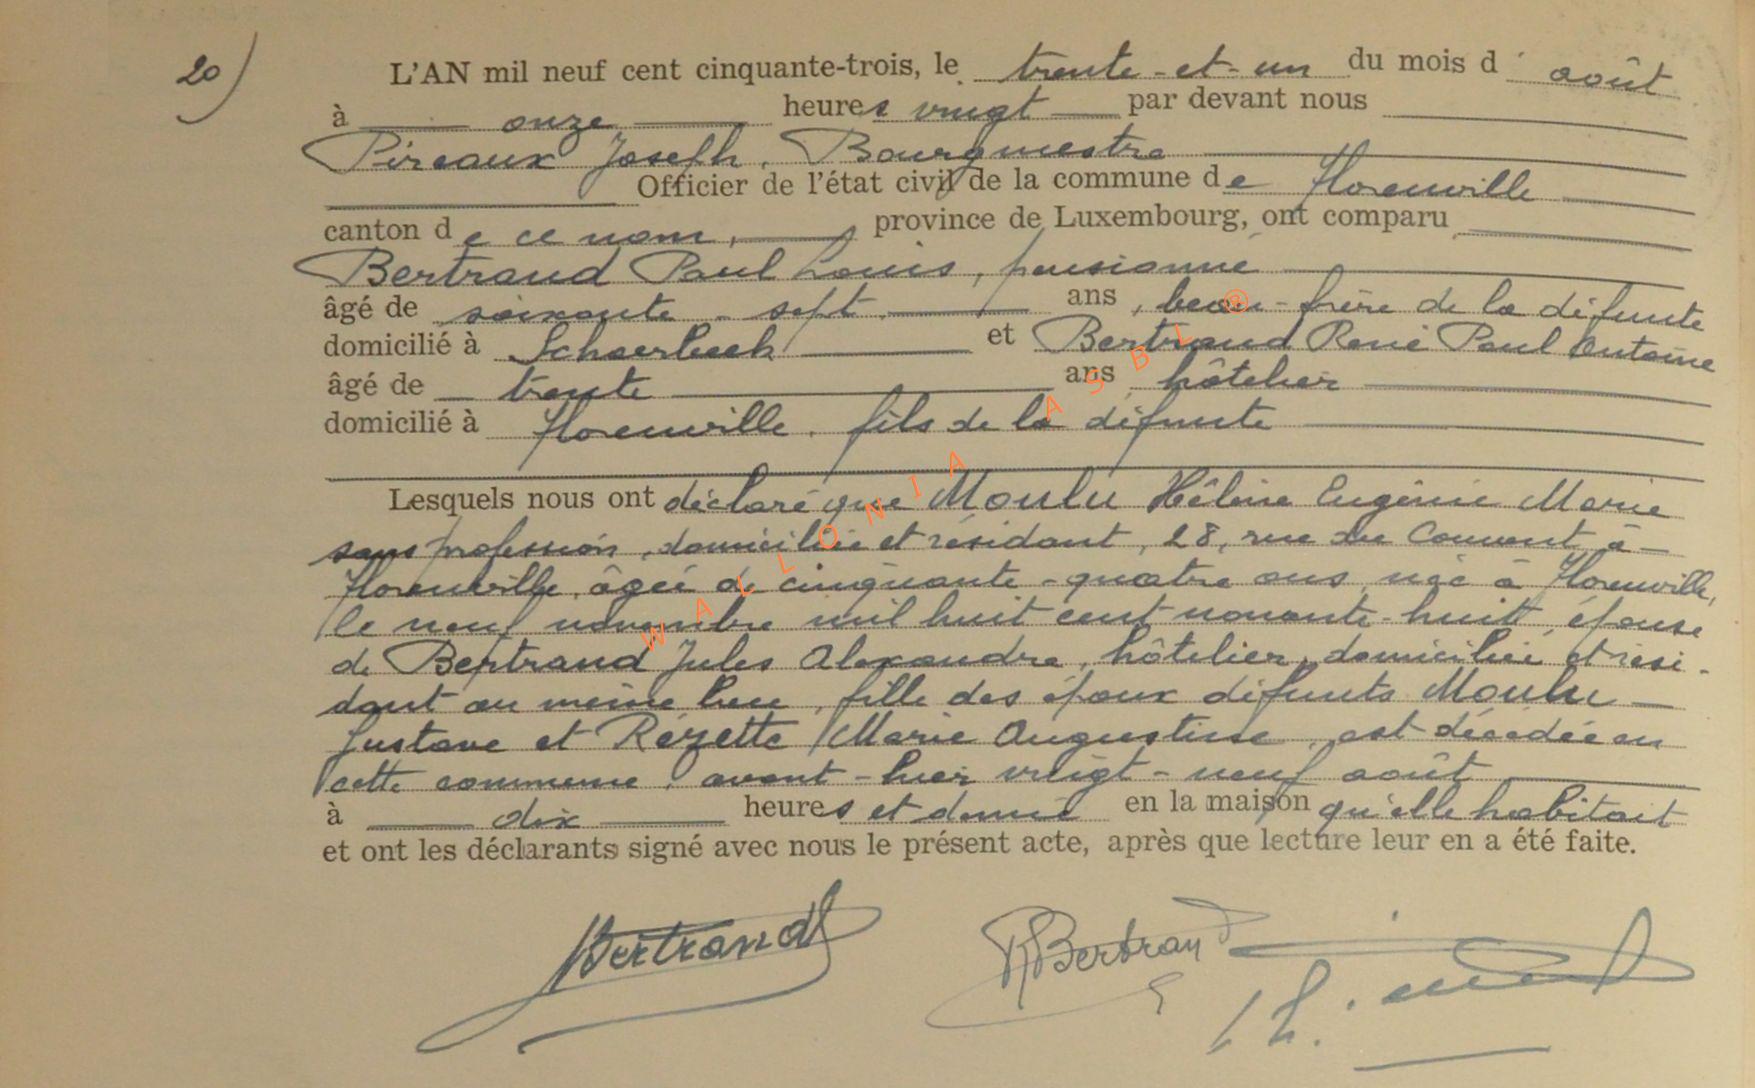 20) L'AN mil neuf cent cinquante-trois, le trente-et-un du mois d' août
à onze heures vingt par devant nous
Pireaux Joseph, Bourgmestre
Officier de l'état civil de la commune de Florenville
canton de ce nom, province de Luxembourg, ont comparu
Bertrand Paul Louis, pensionné
âgé de soixante-sept ans, beau-frère de la défunte
domicilié à Schaerbeek et Bertrand René Paul Antoine
âgé de trente ans hôtelier
domicilié à Florenville, fils de la défunte
Lesquels nous ont déclaré que Moulu Hélène Eugénie Marie
sans profession, domiciliée et résidant, 28, rue du Couvent à
Florenville, âgée de cinquante-quatre ans, née à Florenville,
le neuf novembre mil huit cent nonante-huit, épouse
de Bertrand Jules Alexandre, hôtelier, domiciliée et rési-
dant au même lieu, fille des époux défunts Moulu
Gustave et Rézette Marie Augustine, est décédée en
cette commune, avant-hier vingt-neuf août
à dix heures et demie en la maison qu'elle habitait
et ont les déclarants signé avec nous le présent acte, après que lecture leur en a été faite.
Bertrand RBertrand
WALLONIA ASBL ®